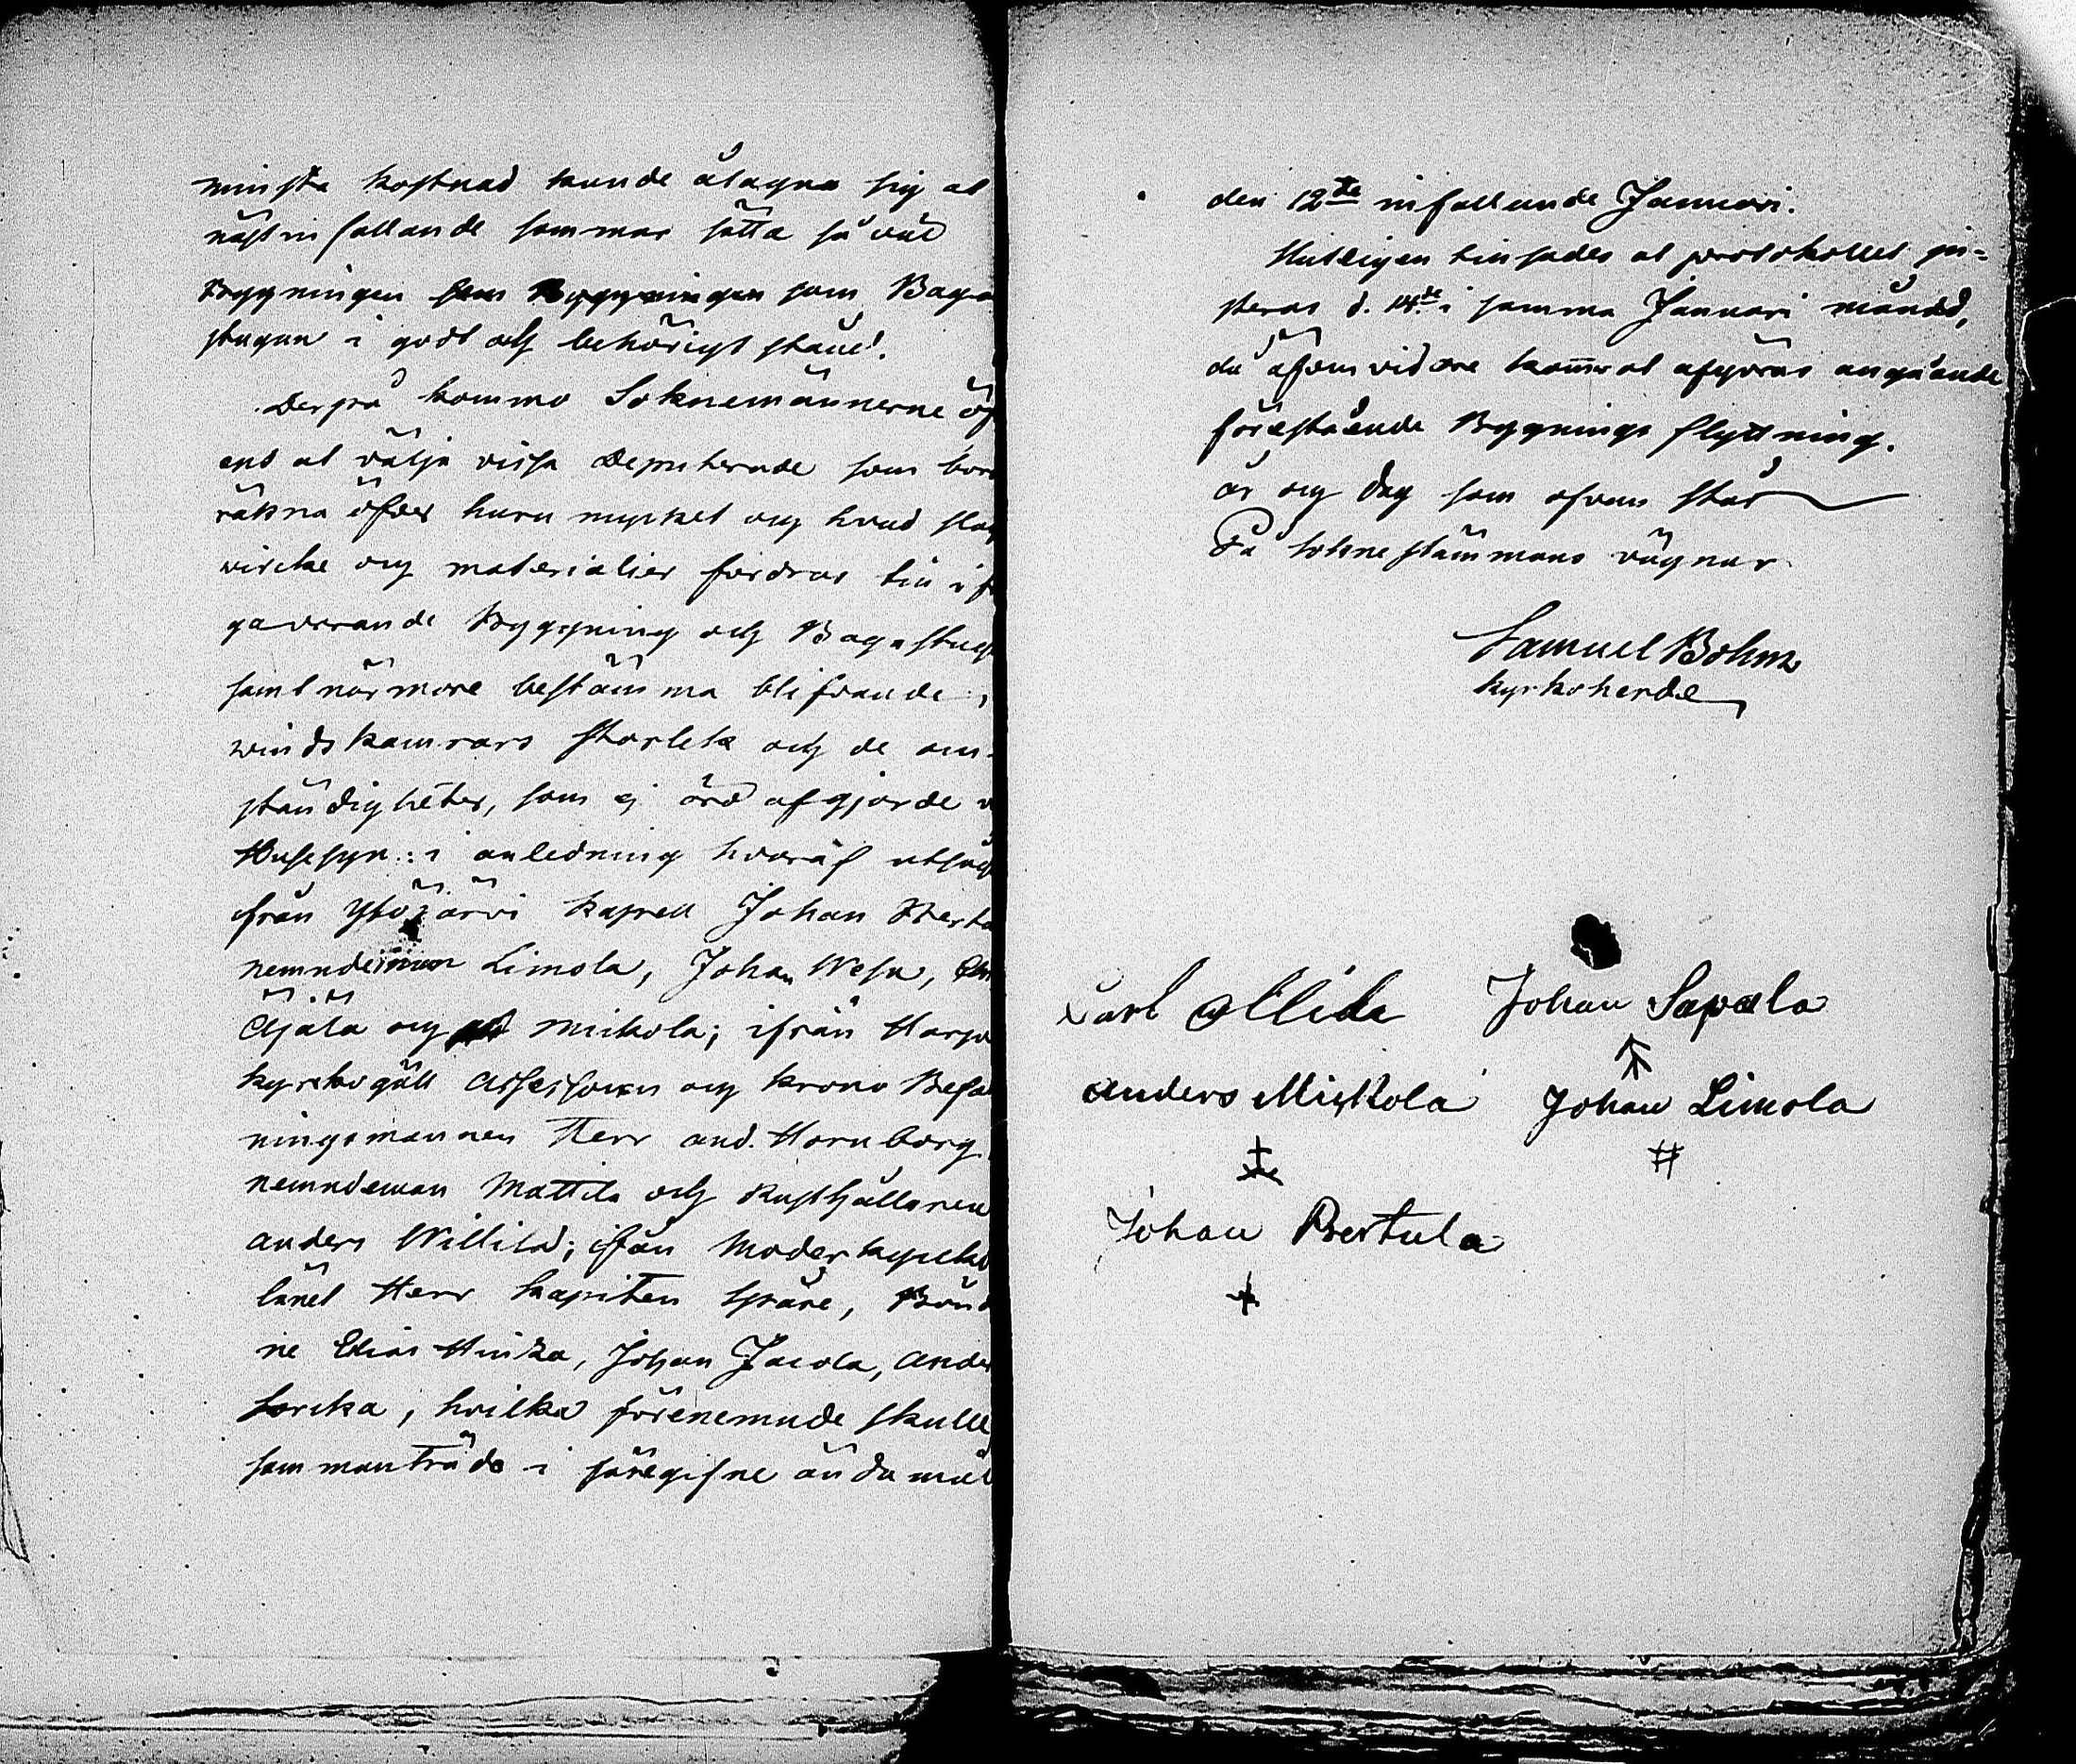 minsta kostnad kunde åtagna sig at
nästinfallande sommar sätta så väl
Byggningen som Byggningen som Baga
stugan i godt och behörigt stånd.
Derpå kommo Soknemännerne öf
ens at välja vissa Deputerade som bor
räkna öfver huru mycket og hvad slag
wircke og materialier fordras til i f
gavarande Byggning och Bagastug
samt närmare bestämma blifvande
windskamrars storlek och de om-
ständigheter, som ej äro afgjorde v
Husesyn: i anledning hvaraf utsågs
från Ylöjärvi kapell Johan Berta
nemndeman Limola, Johan Wesa,
Äjälä og Mikola; ifrån Harju
kyrkogäll Assessoren og krono Befal
ningsmannen Herr And. Hornborg
nemndeman Mattila och Rusthållaren
Anders Willila; ifån Moderkyrko
länet Herr Kapiten Spåre, Bönd
ne Elias Hinza, Johan Jacola, Ander
Sorcka, hvilka förenemnde skulle
sammanträda i föregifne ändamål
den 12te infallande Januari.
Hutligen tilsades at protokollet ju-
steras d. 14de i samma Januari månad,
då äfven vidare kommer at afgöras angående
förestående Byggnings flyttning.
År og Dag som ofvan står
På Soknestämmans vägnar
Samuel Bohm
Kyrkoherde
Carl Ollila Johan Sapala
Anders Mickola Johan Limola
Johan Bertula